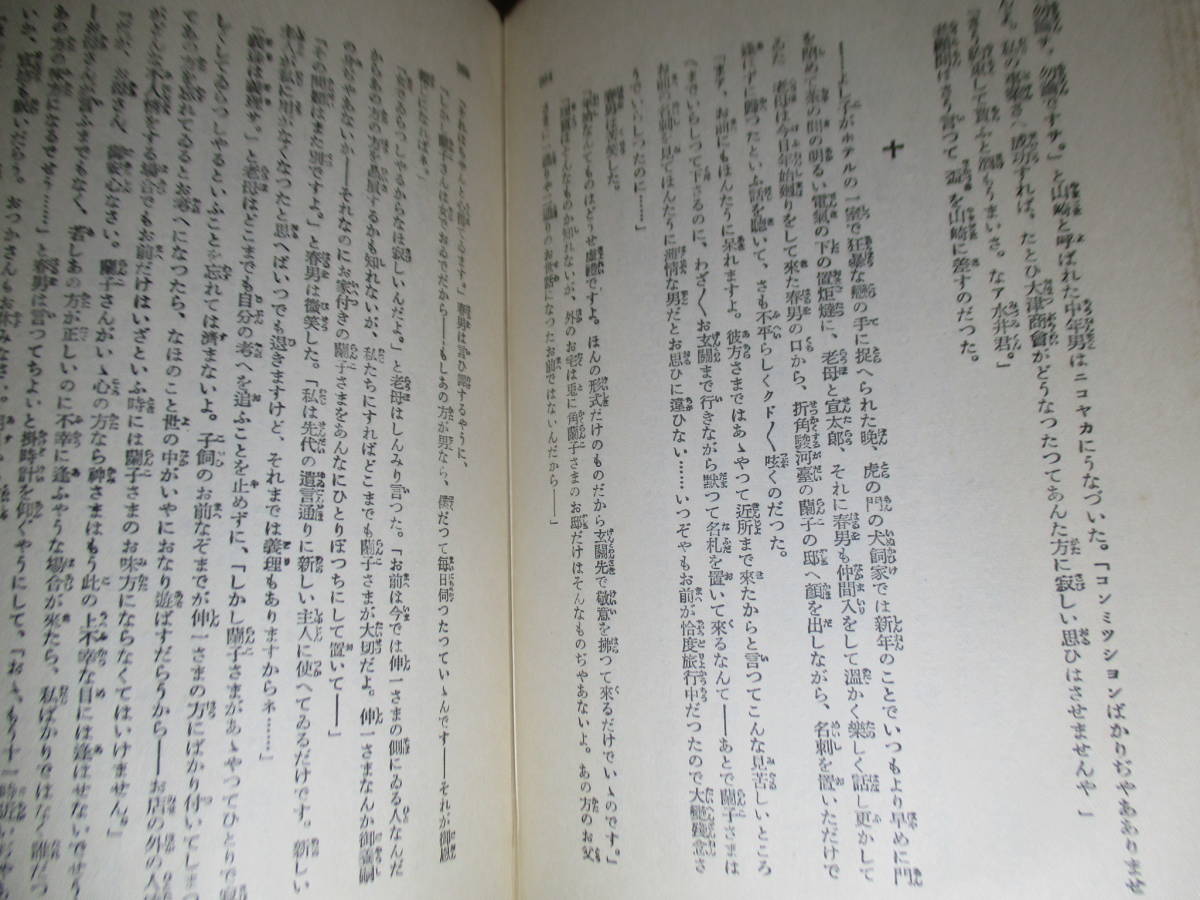 勿論す、勿論ですサ。」と山崎と呼ばれた中年男はニコヤカにうなづいた。「コンミツシヨンばかりぢやありませ
成功すれば、たとひ大津商會がどうなつたつてあんた方に寂しい思ひはさせませんや」
貰ふと酒もうまいさ。なア水井君。」
さう言つて盃を山崎に差すのだつた。
十
子がホテルの一室で狂暴な戀の手に捉へられた晩、虎の門の犬飼家では新年のことでいつもより早めに門
を閉めて茶の間の明るい電氣の下の置炬燵に、老母と宣太郎、それに春男も仲間入をして溫かく樂しく話し更かして
ゐた。老母は今日年始廻りをして來た春男の口から、折角駿河臺の蘭子の邸へ顏を出しながら、名刺を置いただけで
逢はずに歸つたといふ話を聽いて、さも不平らしくクド〱呟くのだつた。
「まア、お前にもほんたうに呆れますよ。彼方さまではあゝやつて近所まで來たからと言つてこんな見苦しいところ
へまでいらしつて下さるのに、わざ〱お玄關まで行きながら默つて名札を置いて來るなんて――あとで蘭子さまは
お前の名刺を見てほんたうに薄情な男だとお思ひに違ひない……いつぞやもお前が恰度旅行中だつたので大變殘念さ
うでいらしつたのに――」
春男は苦笑した。
「年始なんてものはどうせ虛禮ですよ。ほんの形式だけのものだから玄關先で敬意を拂つて來るだけでいゝのです。」
「虛禮はそんなものか知れないが、外のお宅は兎に角蘭子さまのお邸だけはそんなものぢやあないよ。あの方のお父
さまに一通りや二通りのお世話になつたお前ではないんだから――」
「それはちやんと心得てゐます。」春男は言ひ譯するやうに、
「しかし蘭子さんは女でおゐでだから――もしあの方が男なら、僕だつて毎日伺つたつていゝんです――それが御婦
人になればネ。」
「女でゐらつしやるからなほ寂しいんだよ。」と老母はしんみり言つた。「お前は今では伸一さまの側にゐる人なんだ
からあの方の方を贔屓するかも知れないが、私たちにすればどこまでも蘭子さまが大切だよ。伸一さまなんか御養嗣
の方ぢやあないか――それなのにお家付きの蘭子さまをあんなにひとりぽつちにして置いて――」
「その問題はまた別ですよ。」と春男は微笑した。「私は先代の遺言通りに新しい主人に使へてゐるだけです。新しい
主人が私に用がなくなつたと思へばいつでも退きますけど、それまでは義理もありますからネ……」
「義理は義理サ。」と老母はどこまでも自分の考へを追ふことを止めずに、「しかし蘭子さまがあゝやつてひとりで寂
しくしてゐらつしやるといふことを忘れては濟まないよ。子飼のお前なぞまでが伸一さまの方にばかり付いてしまつ
てあの方を忘れてゐるとお考へになつたら、なほのこと世の中がいやにおなり遊ばすだらうから――お店の外の人
がどんな不人情をする場合でもお前だけはいざといふ時には蘭子さまのお味方にならなくてはいけません。」
お母さん、御安心なさい。蘭子さんがいゝ心の方なら神さまはもう此の上不幸な目には逢はせないでせう
お母さんが言ふまでもなく、若しあの方が正しいのに不幸に逢ふやうな場合が來たら、私ばかりではなく誰だつ
あの方の味方になるでせう……」と春男は言つてちよいと掛時計を仰ぐやうにして、「おゝ、もう十一時
おつかさんもお休みなさい。